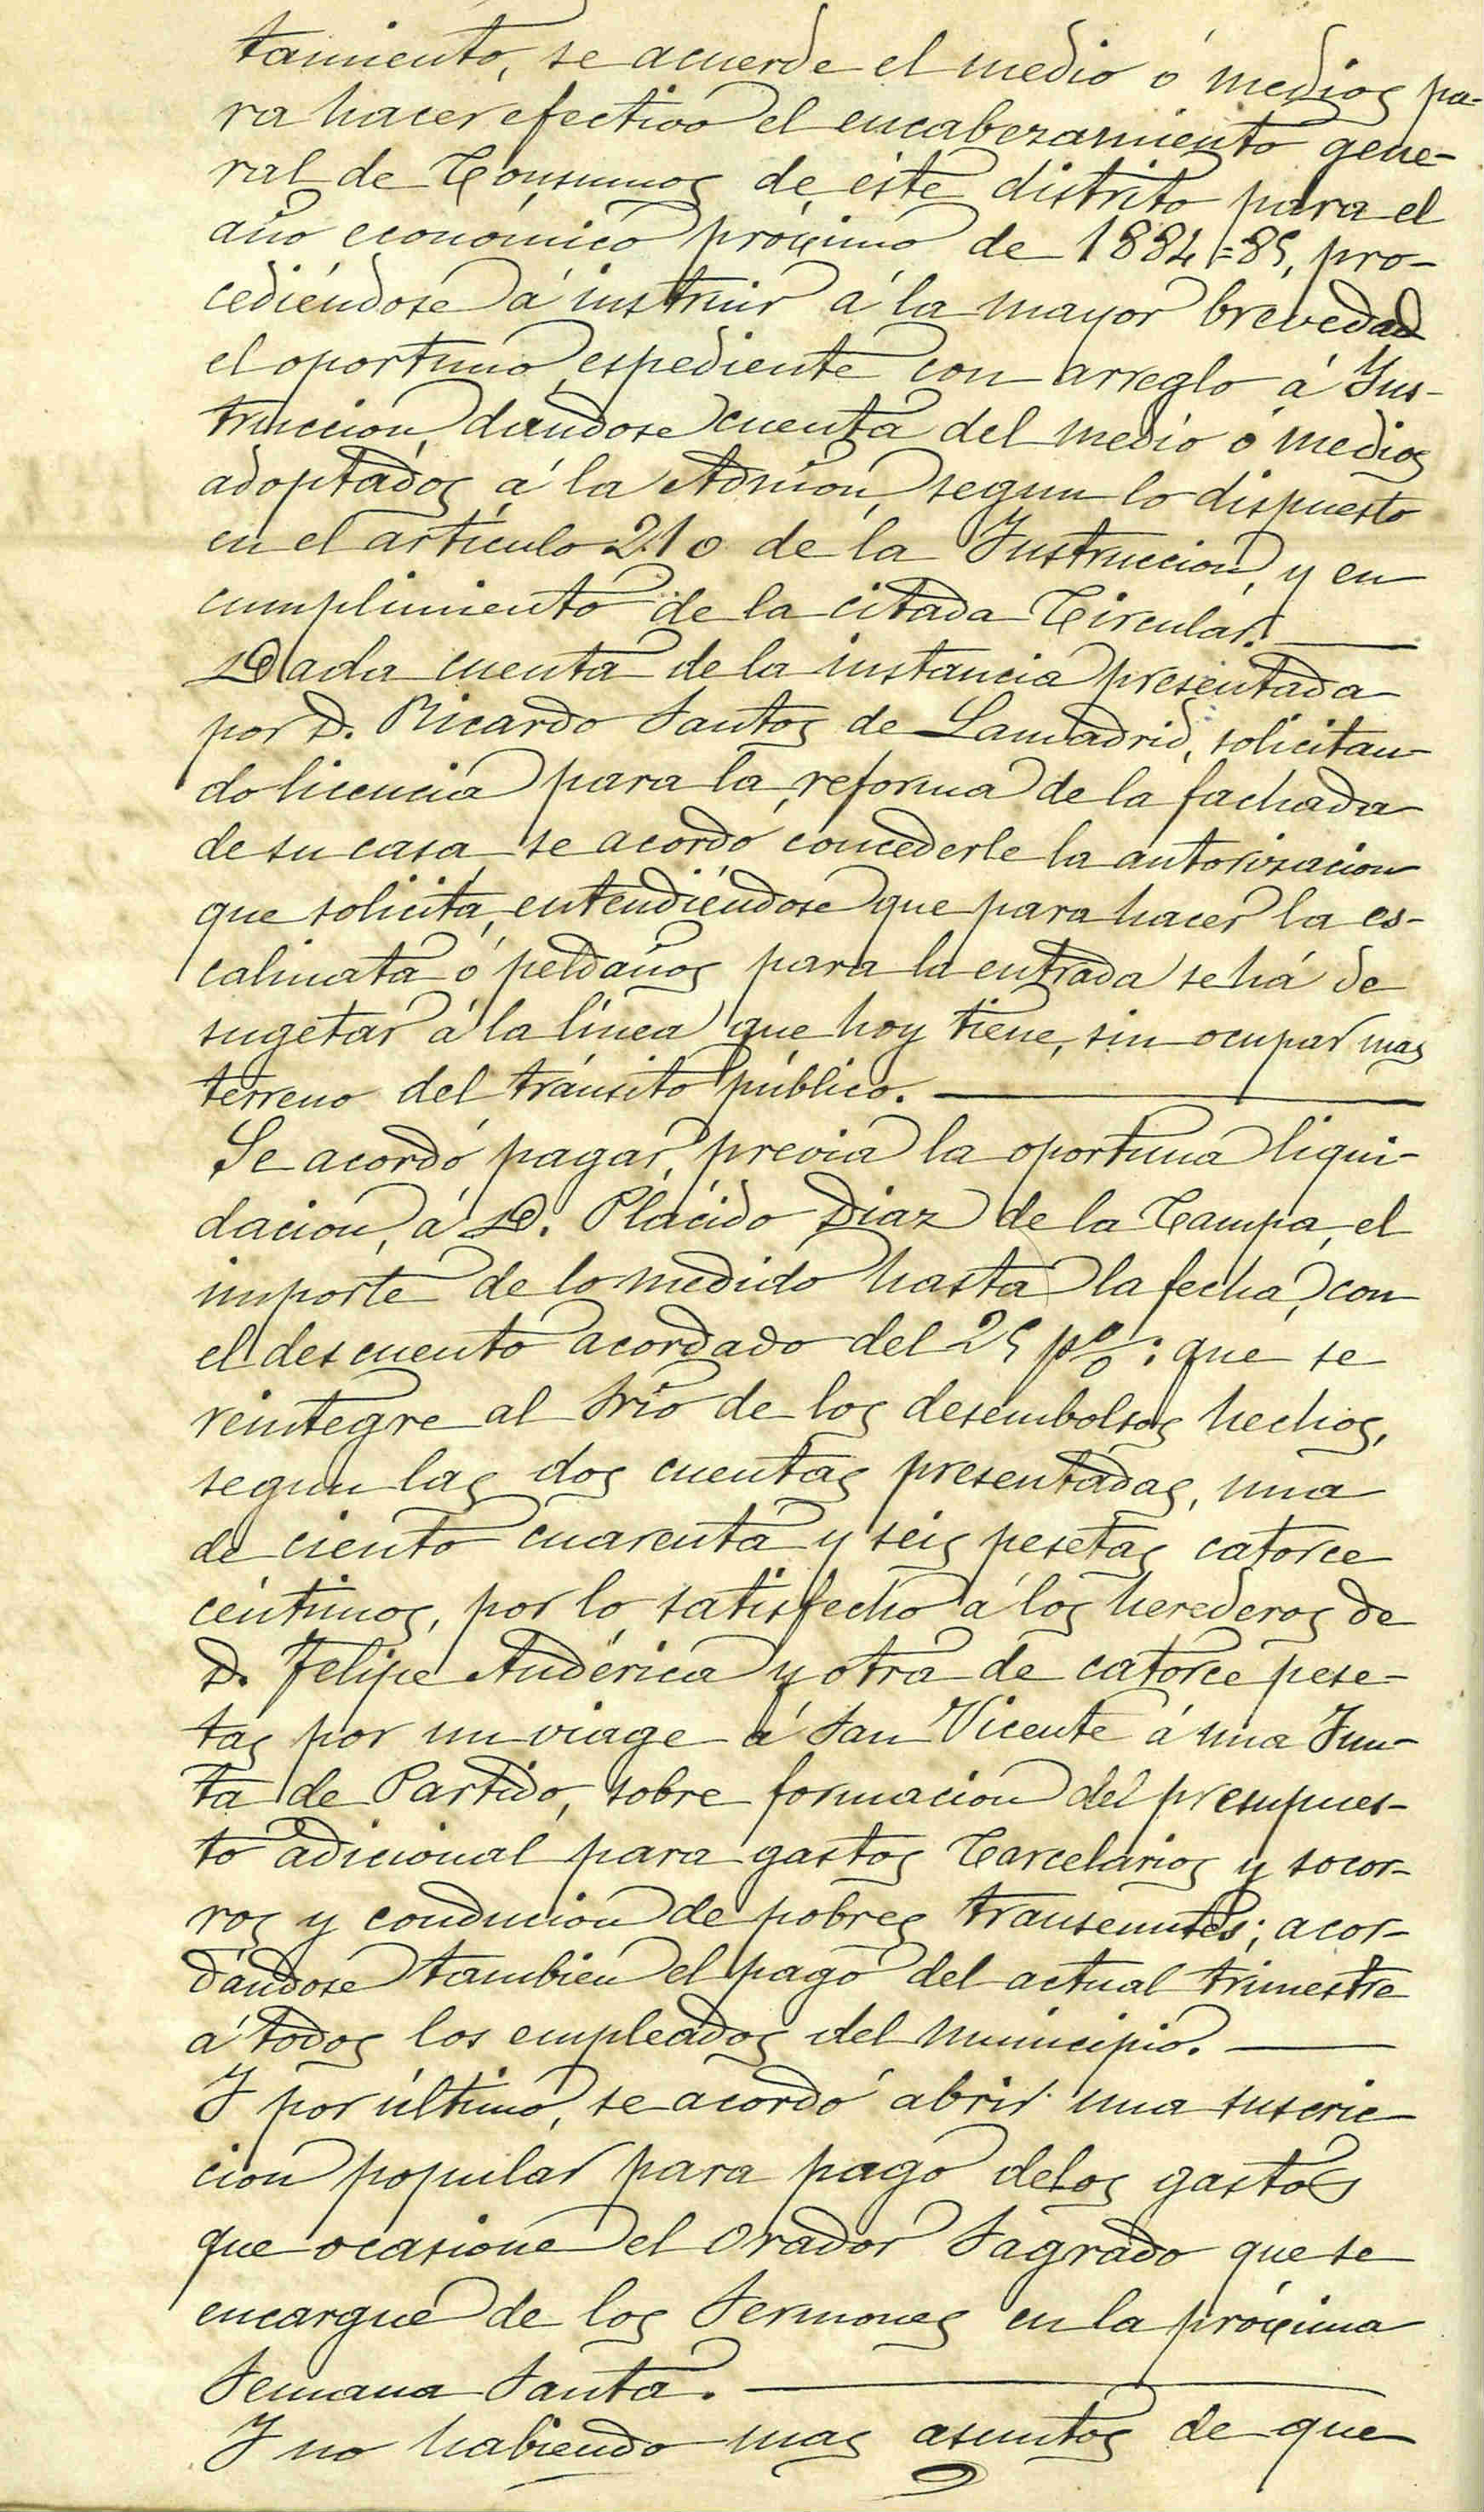 tamiento, se acuerde el medio ó medios pa-
ra hacer efectivo el encabezamiento gene-
ral de Consumos de éste distrito para el
año económico próximo de 1884=85, pro-
cediéndose á instruir á la mayor brevedad
el oportuno espediente con arreglo á Ins-
truccion, dándose cuenta del medio ó medios
adoptados, á la Admon, segun lo dispuesto
en el artículo 210 de la Instruccion, y en
cumplimiento de la citada Circular.
Dada cuenta de la instancia presentada
por D. Ricardo Santos de Lamadrid, solicitan-
do licencia para la reforma de la fachada
de su casa, se acordó concederle la autorizacion
que solicita, entendiéndose que para hacer la es-
calinata ó peldaños para la entrada se há de
sugetar á la línea que hoy tiene, sin ocupar mas
terreno del tránsito público.
Se acordó pagar, previa la oportuna liqui-
dacion, á D. Plácido Diaz de la Campa, el
importe de lo medido hasta la fecha, con
el descuento acordado del 25 p%: que se
reintegre al Srio de los desembolsos hechos,
segun las dos cuentas presentadas, una
de ciento cuarenta y seis pesetas catorce
céntimos, por lo satisfecho á los herederos de
D. Felipe Andérica y otra de catorce pese-
tas por un viage á San Vicente á una Jun-
ta de Partido, sobre formacion del presupues-
to adicional para gastos Carcelarios y socor-
ros y conducion de pobres transeuntes; acor-
dándose tambien el pago del actual trimestre
á todos los empleados del Municipio.
Y por último, se acordó abrir una suscric-
cion popular para pago de los gastos
que ocasione el Orador Sagrado que se
encargue de los Sermones en la próxima
Semana Santa.
Y no habiendo mas asuntos de que